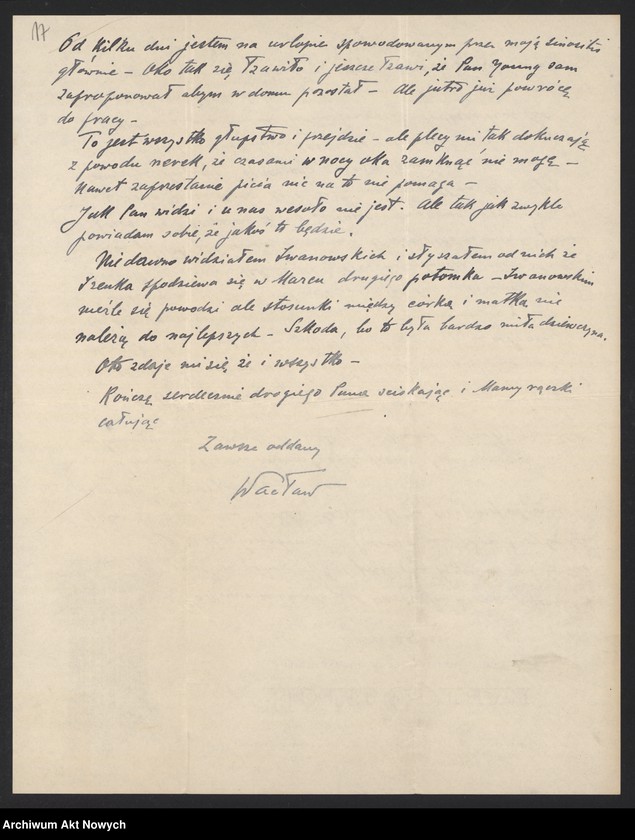 17
Od kilku dni jestem na urlopie spowodowanym przez moją sinositis
głównie – Oko tak się łzawiło i jeszcze łzawi, że Pan Young sam
zaproponował abym w domu pozostał – Ale jutro już powrócę
do pracy –
To jest wszystko głupstwo i przejdzie – ale plecy mi tak dokuczają
z powodu nerek, że czasami w nocy oka zamknąć nie mogę –
Nawet zaprzestanie picia nic na to nie pomaga –
Jak Pan widzi i u nas wesoło nie jest. Ale tak jak zwykle
powiadam sobie, że jakoś to będzie.
Niedawno widziałem Iwanowskich i słyszałem od nich że
Irenka spodziewa się w Marcu drugiego potomka – Iwanowskim
nieźle się powodzi ale stosunki między córką i matką nie
należą do najlepszych – Szkoda, bo to była bardzo miła dziewczyna.
Oto zdaje mi się że i wszystko –
Kończę serdecznie drogiego Pana ściskając i Mamy rączki
całując
Zawsze oddany
Wacław
Archiwum Akt Nowych